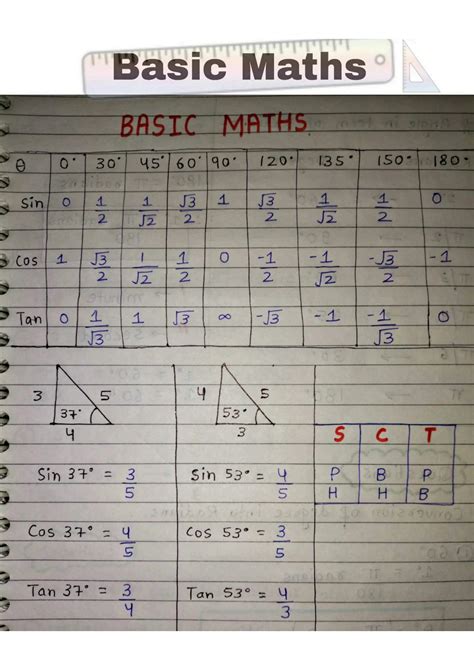 Basic Maths
BASIC MATHS
θ 0° 30° 45° 60° 90° 120° 135° 150° 180°
Sin 0 1/2 1/√2 √3/2 1 √3/2 1/√2 1/2 0
Cos 1 √3/2 1/√2 1/2 0 -1/2 -1/√2 -√3/2 -1
Tan 0 1/√3 1 √3 ∞ -√3 -1 -1/√3 0
3 5 37° 4
4 5 53° 3
S C T
P B P
H H B
Sin 37° = 3/5
Sin 53° = 4/5
Cos 37° = 4/5
Cos 53° = 3/5
Tan 37° = 3/4
Tan 53° = 4/3